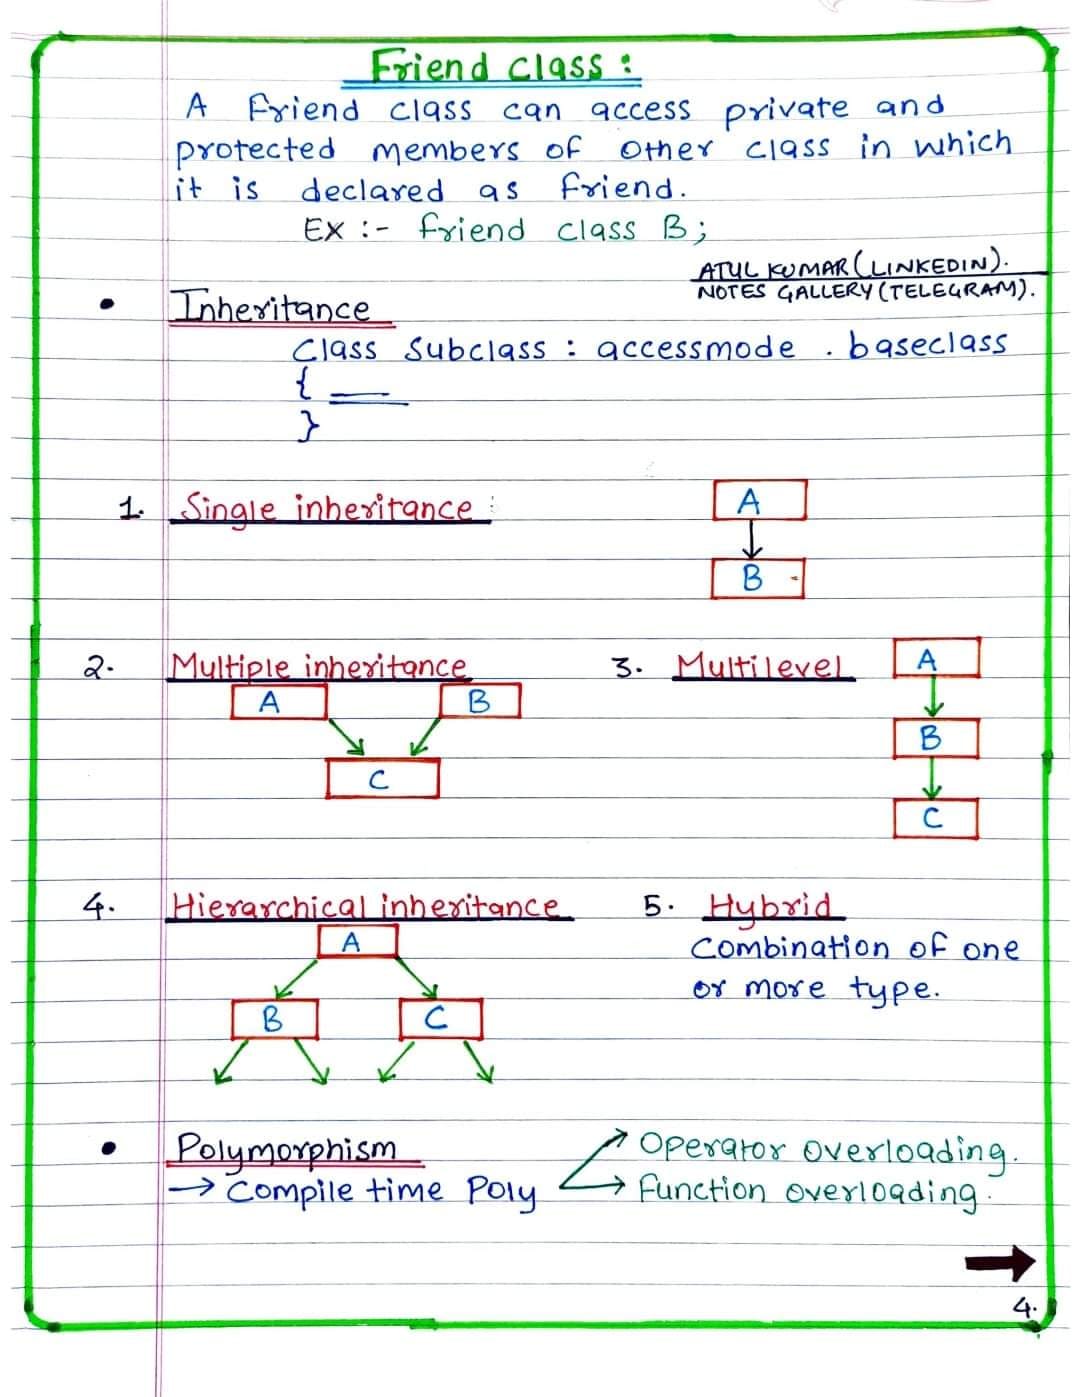 Friend class :
A friend class can access private and
protected members of other class in which
it is declared as friend.
Ex :- friend class B;
ATUL KUMAR (LINKEDIN).
NOTES GALLERY (TELEGRAM).
• Inheritance
Class Subclass : accessmode . baseclass
{
}
1. Single inheritance :
A
B
2. Multiple inheritance
A B
C
3. Multilevel
A
B
C
4. Hierarchical inheritance
A
B C
5. Hybrid
Combination of one
or more type.
• Polymorphism
→ Compile time Poly
→ Operator overloading.
→ function overloading.
4.